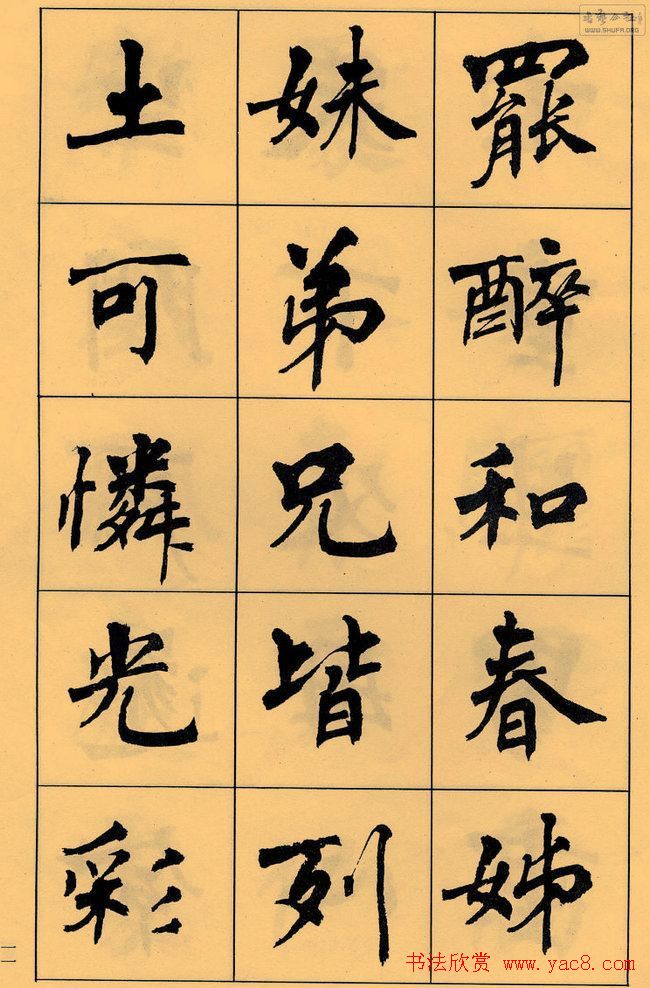 罷醉和春姊
妹弟兄皆列
土可憐光彩
一一
WWW.SHUFA.ORG
书法欣赏 www.yac8.com